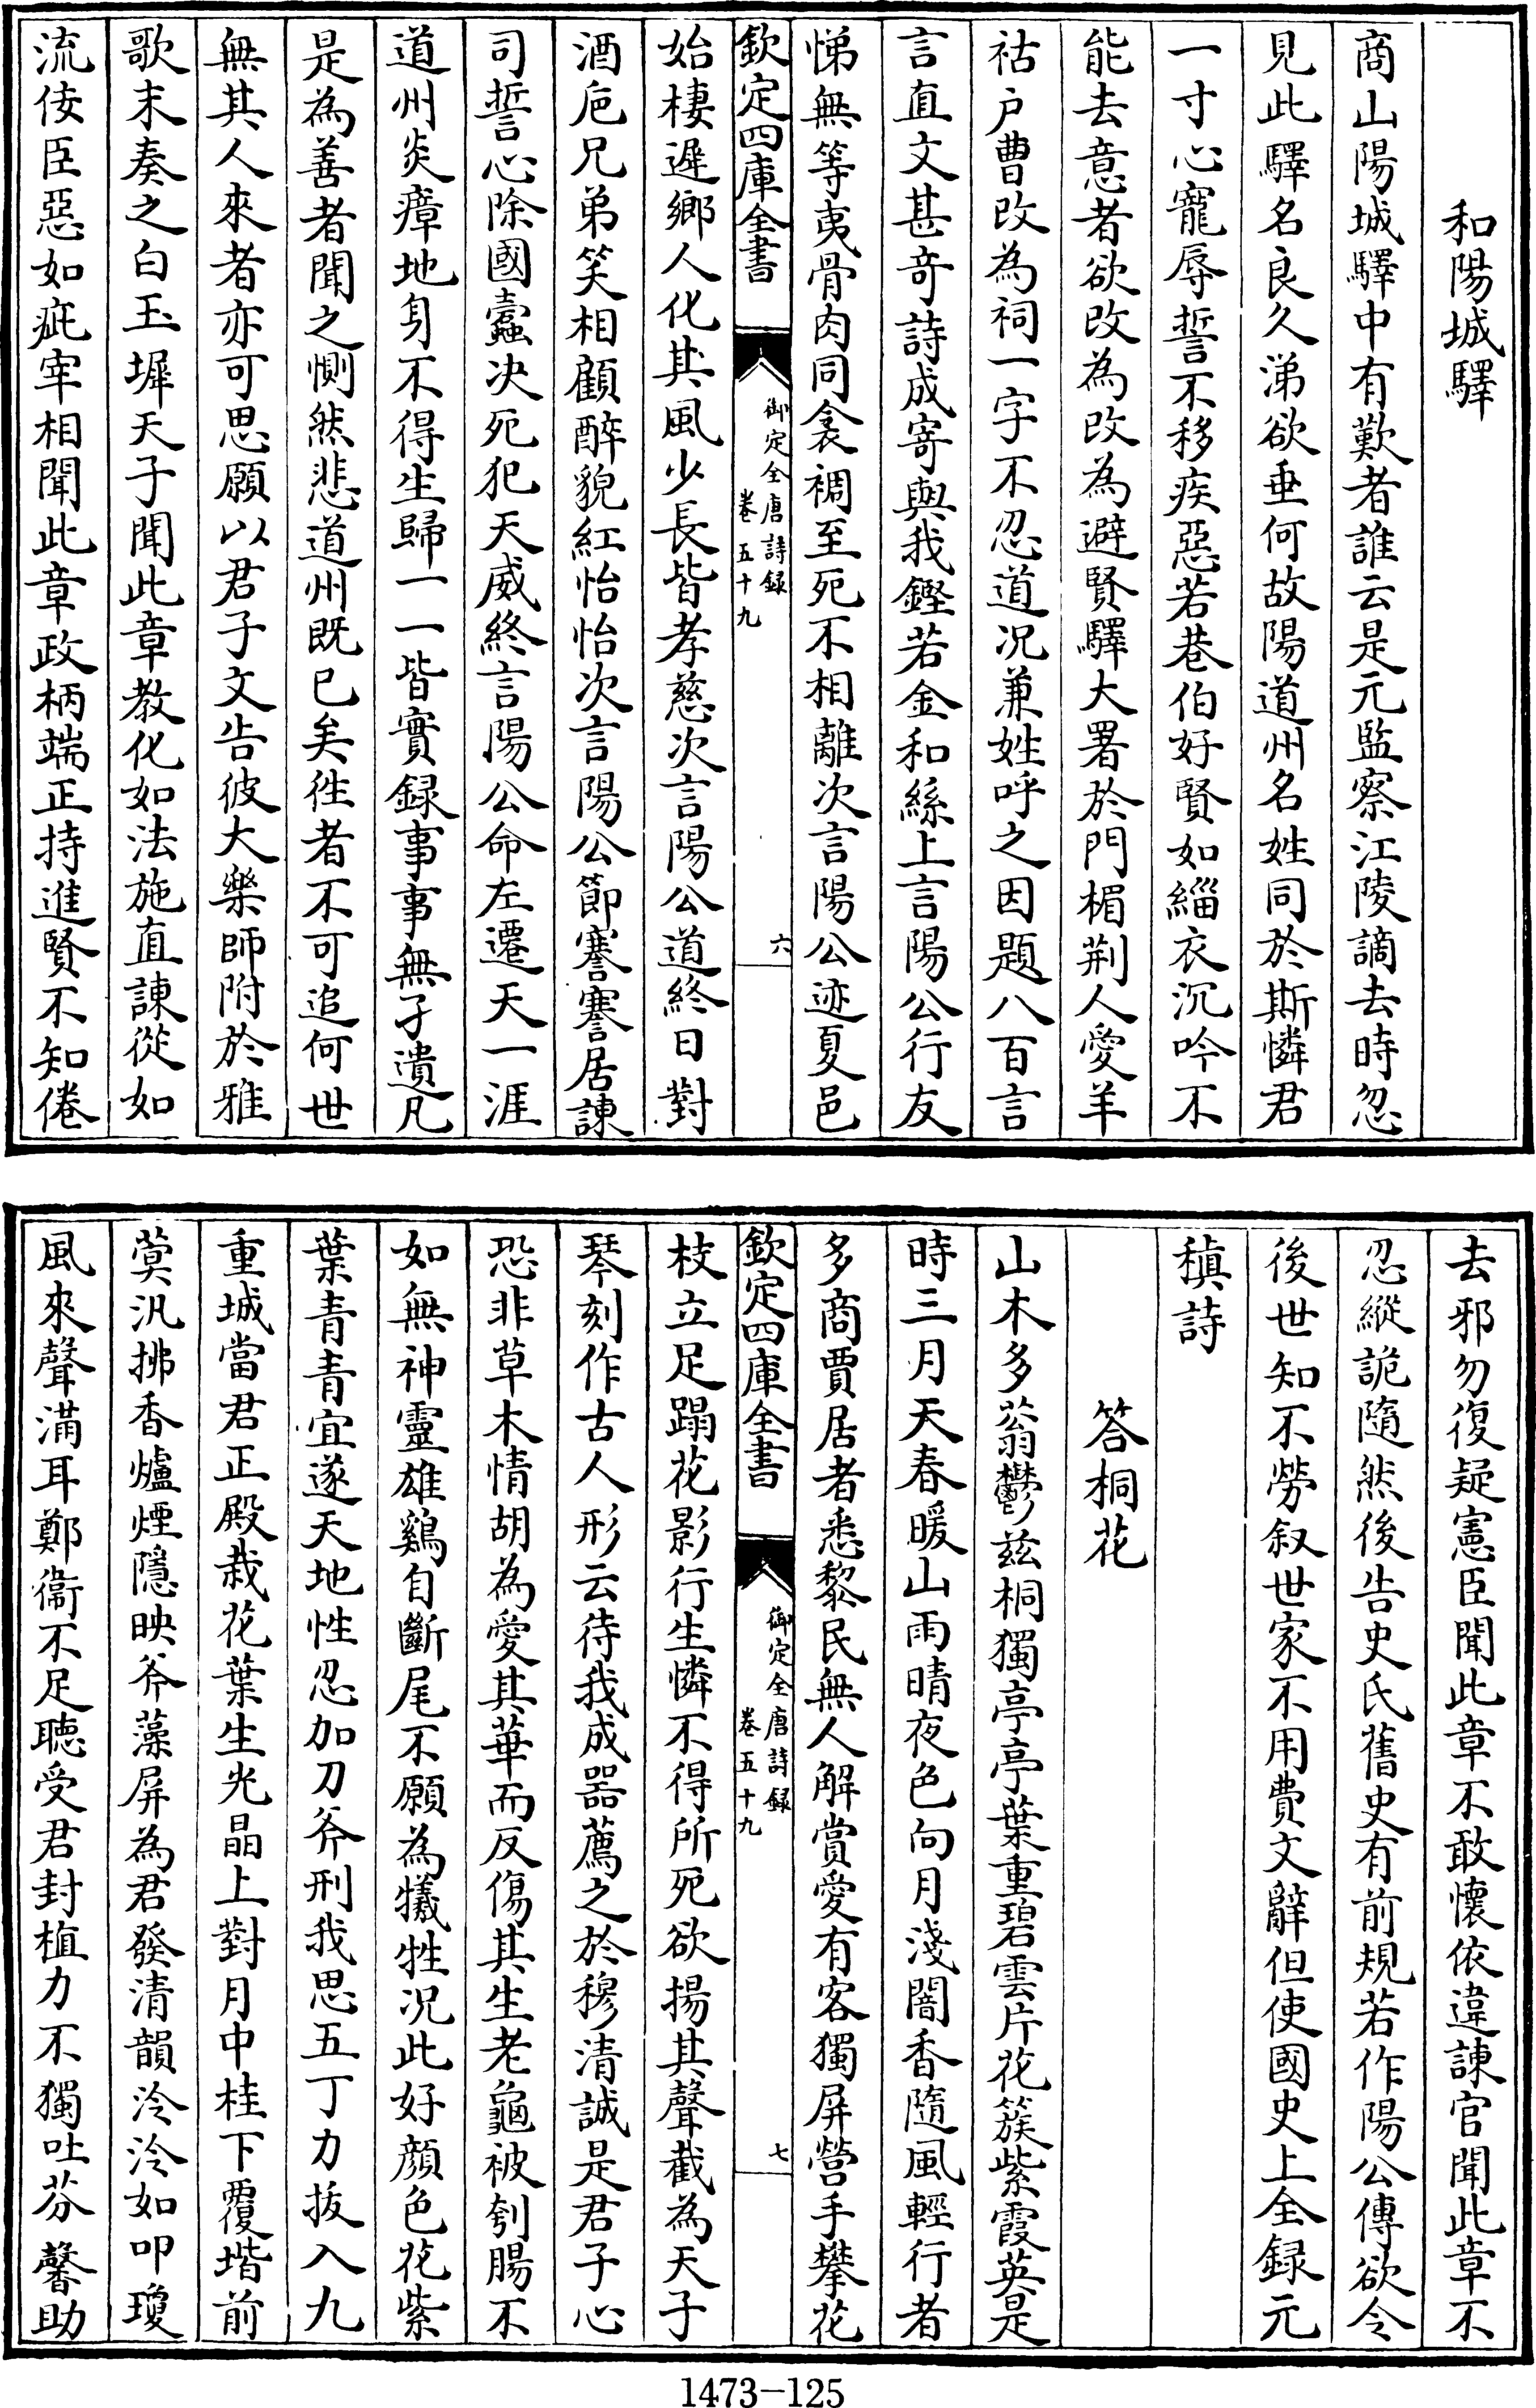 和陽城驛
商山陽城驛中有歎者誰云是元監察江陵謫去時忽
見此驛名良久涕欲垂何故陽道州名姓同於斯憐君
一寸心寵辱誓不移疾惡若巷伯好賢如緇衣沉吟不
能去意者欲改為改為避賢驛大署於門楣荆人愛羊
祜户曹改為祠一字不忍道况兼姓呼之因題八百言
言直文甚奇詩成寄與我鏗若金和絲上言陽公行友
悌無等夷骨肉同衾裯至死不相離次言陽公迹夏邑
欽定四庫全書
御定全唐詩録
卷五十九
六
始棲遲鄉人化其風少長皆孝慈次言陽公道終日對
酒巵兄弟笑相顧醉貌紅怡怡次言陽公節謇謇居諫
司誓心除國蠹决死犯天威終言陽公命左遷天一涯
道州炎瘴地身不得生歸一一皆實録事事無孑遺凡
是為善者聞之惻然悲道州既已矣徃者不可追何世
無其人來者亦可思願以君子文告彼大樂師附於雅
歌末奏之白玉墀天子聞此章教化如法施直諫從如
流佞臣惡如疵宰相聞此章政柄端正持進賢不知倦
去邪勿復疑憲臣聞此章不敢懷依違諫官聞此章不
忍縱詭隨然後告史氏舊史有前規若作陽公傳欲令
後世知不勞叙世家不用費文辭但使國史上全録元
稹詩
答桐花
山木多蓊鬱兹桐獨亭亭葉重碧雲片花簇紫霞英是
時三月天春暖山雨晴夜色向月淺闇香隨風輕行者
多商賈居者悉黎民無人解賞愛有客獨屏營手攀花
欽定四庫全書
御定全唐詩録
卷五十九
七
枝立足蹋花影行生憐不得所死欲揚其聲截為天子
琴刻作古人形云待我成器薦之於穆清誠是君子心
恐非草木情胡為愛其華而反傷其生老龜被刳腸不
如無神靈雄鷄自斷尾不願為犧牲况此好顔色花紫
葉青青宜遂天地性忍加刀斧刑我思五丁力拔入九
重城當君正殿栽花葉生光晶上對月中桂下覆堦前
蓂汎拂香爐煙隱映斧藻屏為君發清韻泠泠如叩瓊
風來聲滿耳鄭衞不足聽受君封植力不獨吐芬馨助
1473-125